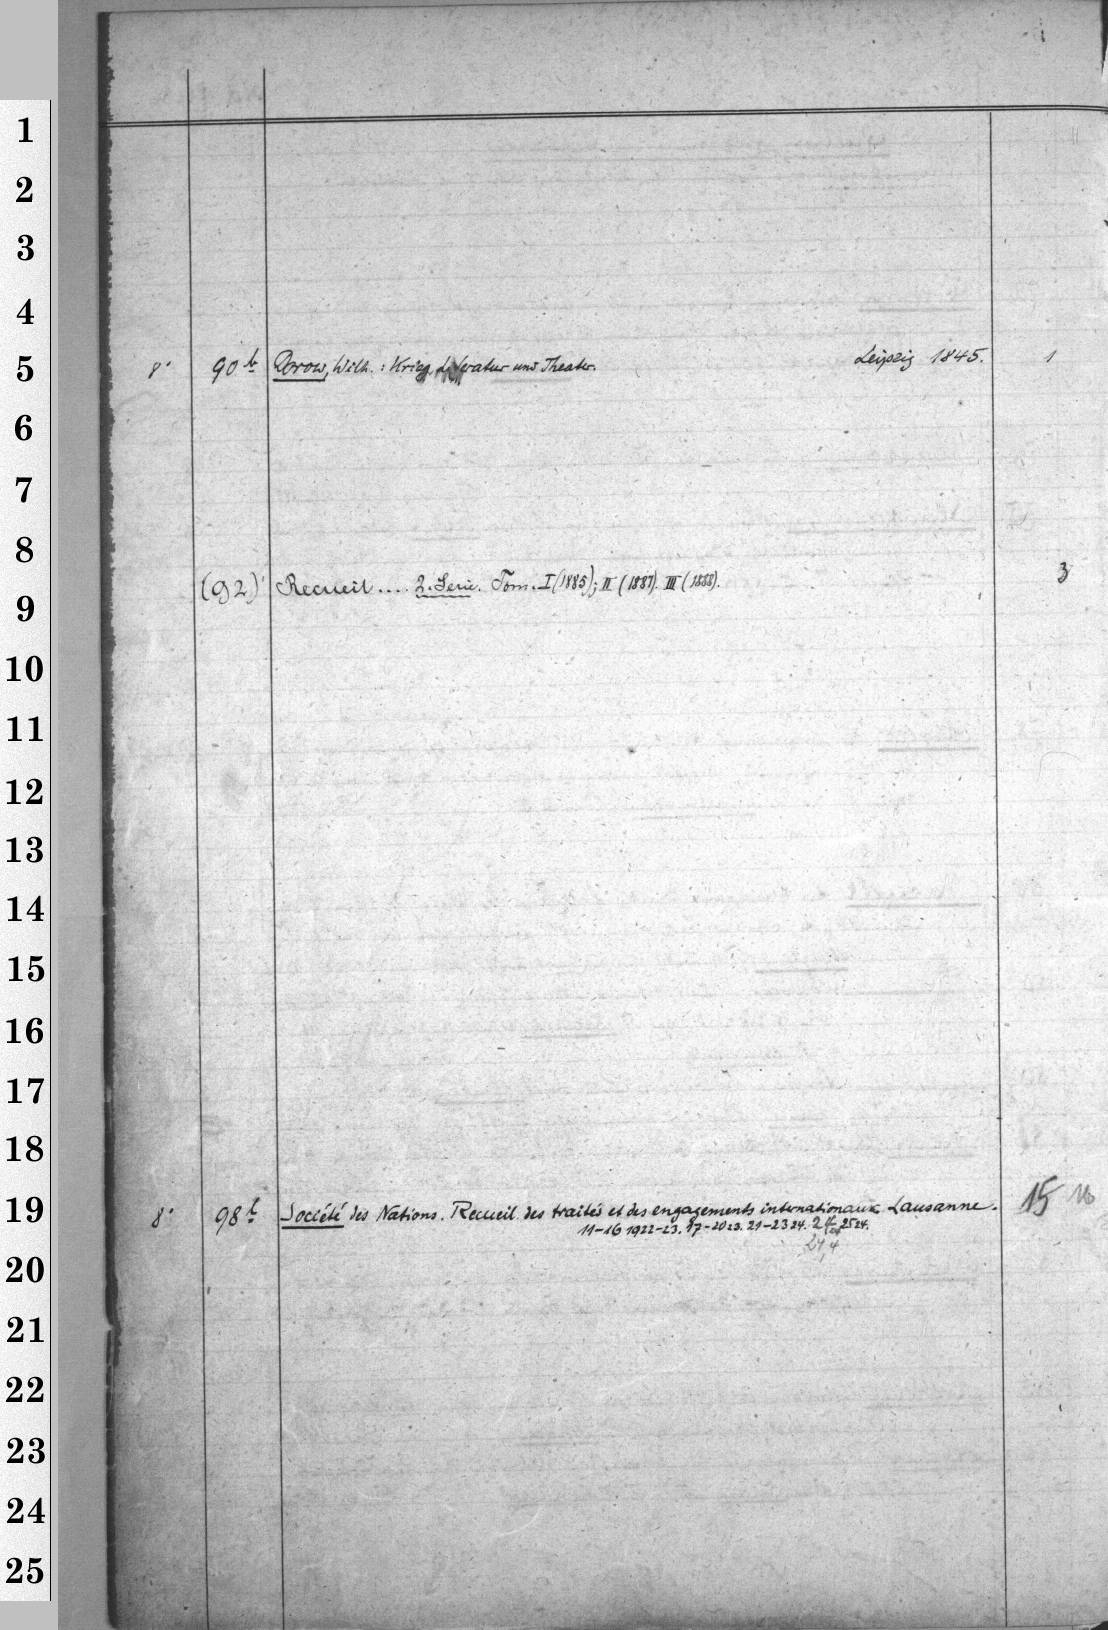 1
2
3
4
5
8° 90 b Dorow, Wilh.: Krieg, Literatur und Theater. Leipzig 1845. 1
6
7
8
(92) Recueil.... 2. Serie. Tom. I (1885); II (1887). III (1888). 3
9
10
11
12
13
14
15
16
17
18
19
8° 98 b Société des Nations. Recueil des traités et des engagements internationaux. Lausanne. 15
11-16 1922-23. 17-20 23. 21-23 24. 25 24.
20
21
22
23
24
25